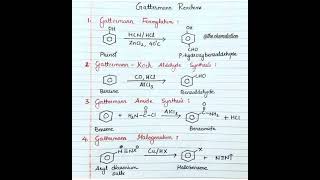 Gattermann Reactions
1. Gattermann Formylation :
OH
HCN/HCl
ZnCl₂, 40°C
OH
CHO
Phenol
P-hydroxybenzaldehyde
2. Gattermann - Koch Aldehyde Synthesis :
CO, HCl
AlCl₃
CHO
Benzene
Benzaldehyde
3. Gattermann Amide Synthesis :
+ H₂N-C-Cl
O
AlCl₃
O
C-NH₂
+ HCl
Benzene
Benzamide
4. Gattermann Halogenation :
N≡NX
Cu/HX
X
+ N≡N
Aryl diazonium
salts
Halobenzene